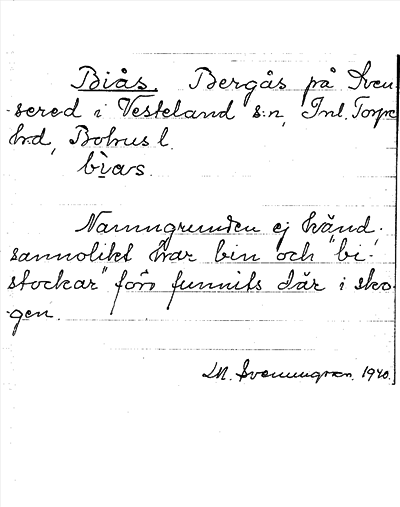 Biås. Bergås på Sven-
sered i Vesteland s:n, Inl. Torpe
h:d, Bohus l.
bìas.
Namngrunden ej känd.
sannolikt har bin och "bi-
stockar" förr funnits där i sko-
gen.
M. Svenungsson. 1940.